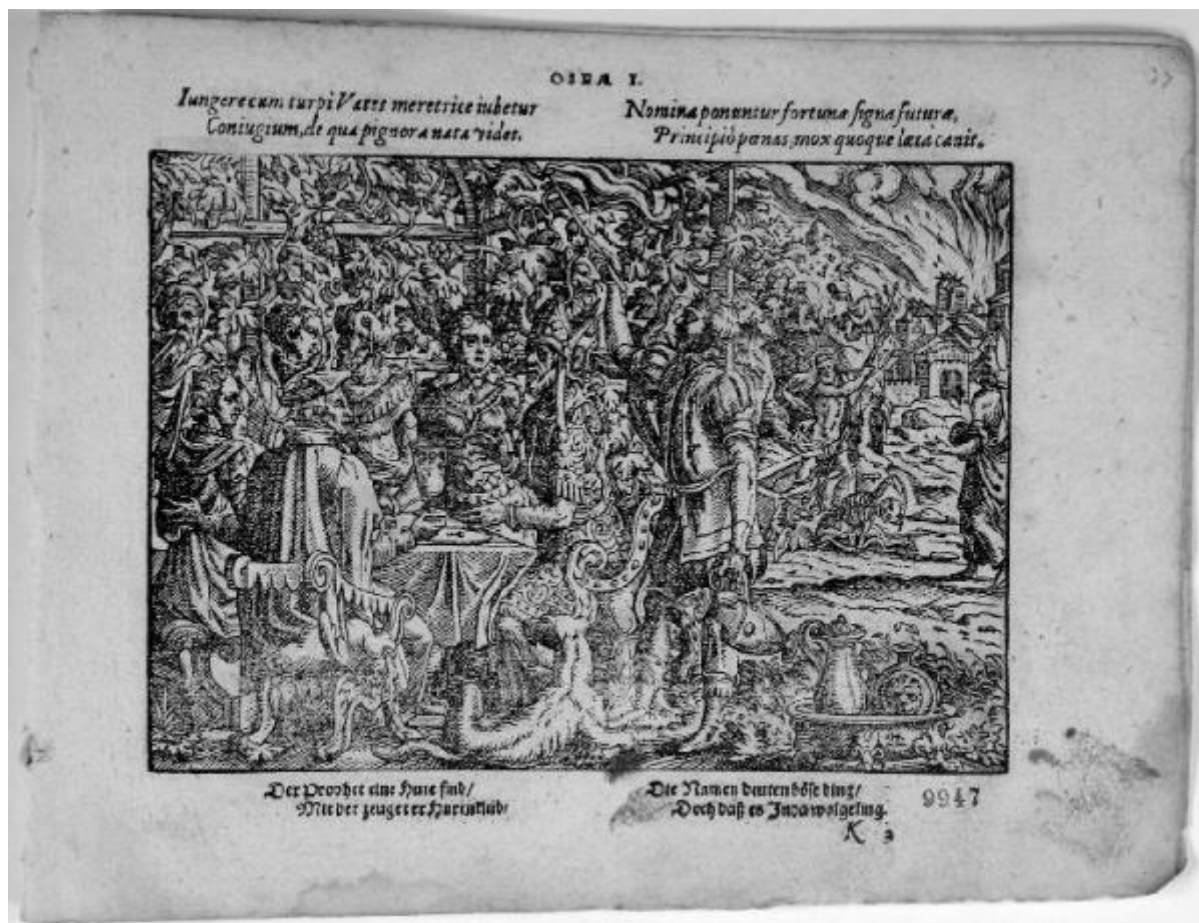 OSEÆ I.
Iungere cum turpi Vates meretrice iubetur
Coniugium, de qua pignora nata videt.
Nomina ponuntur fortunæ signa futuræ,
Principiò pœnas, mox quoque læta canit.
Der Prophet eine Hure find/
Mit der zeuget er Hurenkind/
Die Namen deuten böse ding/
Doch daß es Juda wolgeling.
9947
K 3